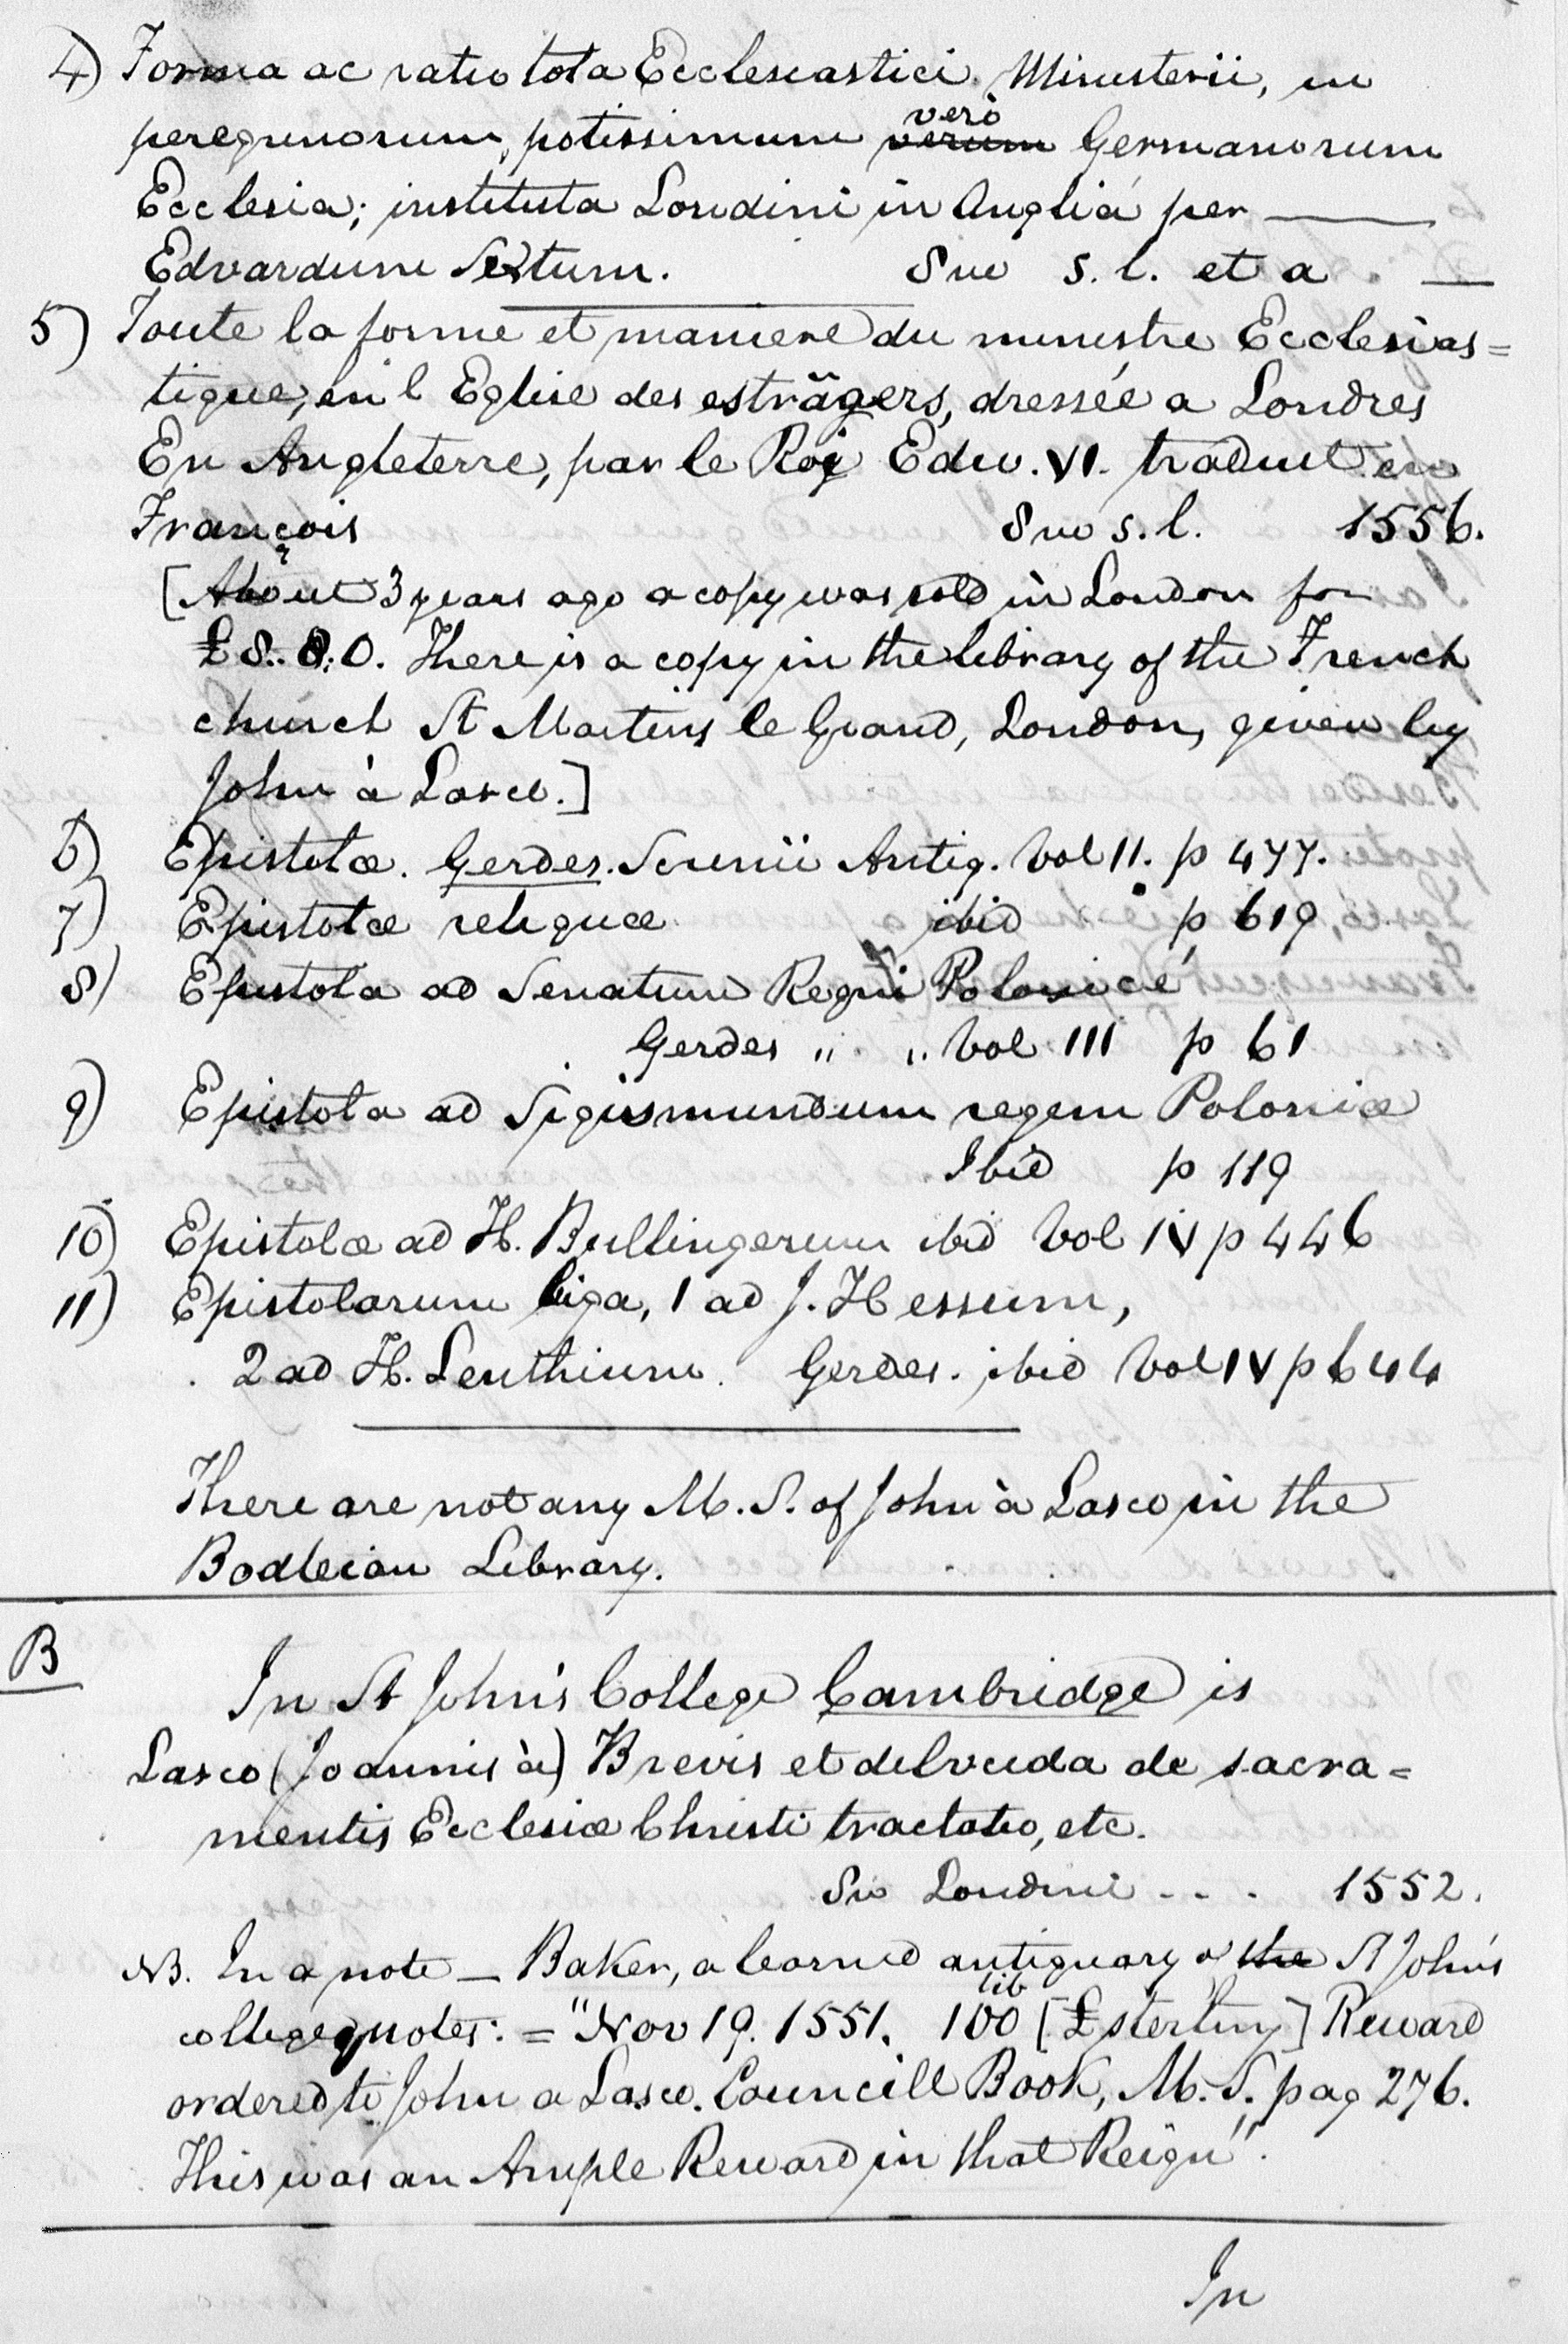 4) Forma ac ratio tota Ecclesiastici Ministerii, in
peregrinorum, potissimum verò verum Germanorum
Ecclesia; instituta Londini in Angliá per ———
Edvardum Sextum. 8vo s. l. et a —
5) Toute la forme et maniere du ministre Ecclesias=
tique, en l Eglise des estrãgers, dressée a Londres
En Angleterre, par le Roy Edw. VI. traduit en
François 8vo s. l. 1556.
[About 3 years ago a copy was sold in London for
£8.. 8: 0. There is a copy in the library of the French
church St Martins le Grand, London, given by
John à Lasco.]
6) Epistolæ. Gerdes. Scrinii Antiq. Vol II. p 477.
7) Epistolæ reliquæ ibid p 619.
8) Epistola ad Senatum Regni Polonicé
Gerdes " " Vol III p 61
9) Epistola ad Sigismundum regem Poloniæ
Ibid p 119
10) Epistolæ ad H. Bullingerum ibid Vol IV p 446
11) Epistolarum biga, 1 ad J. Hessum,
2 ad H. Lenthium. Gerdes. ibid Vol IV p 644
There are not any M.S. of John à Lasco in the
Bodleian Library.
B
In St John's College Cambridge is
Lasco (Joannis à) Brevis et delucida de sacra=
mentis Ecclesiæ Christi tractatio, etc.
8vo Londini - - - 1552.
NB. In a note — Baker, a learned antiquary of the St John's
college quotes: = "Nov 19. 1551. 100 lib [£ sterling] Reward
ordered to John a Lasco. Councill Book, M.S. pag 276.
This was an Ample Reward in that Reign".
In